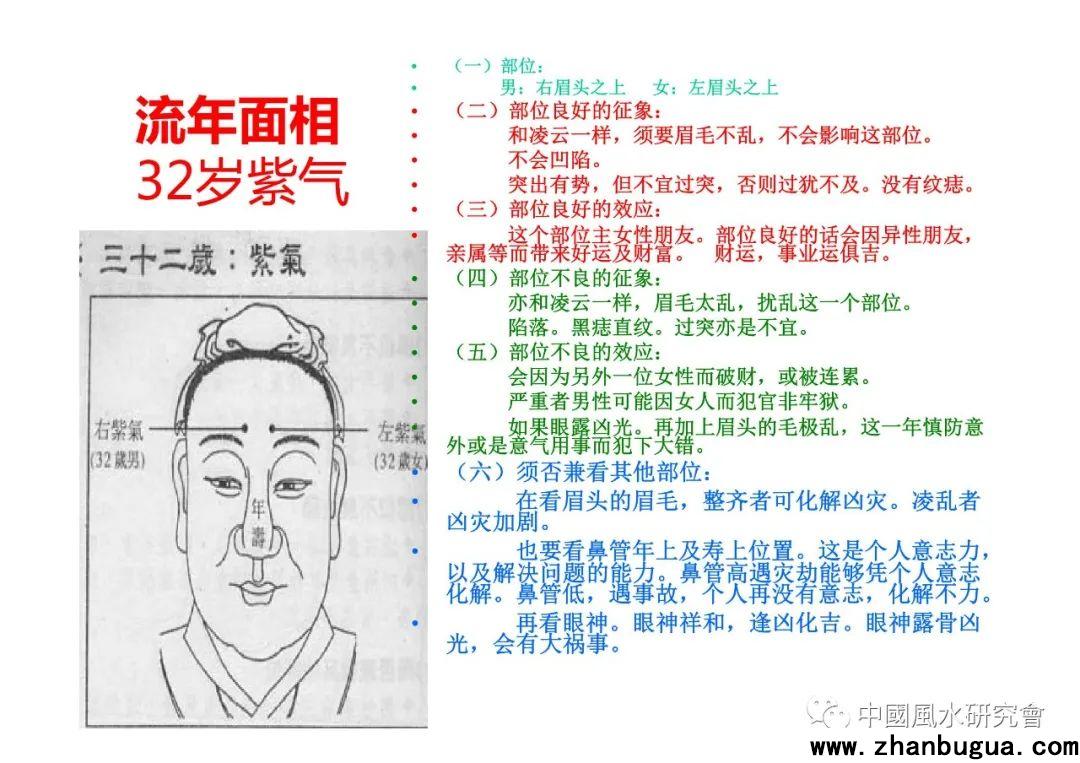 流年面相
32岁紫气
三十二歲：紫氣
右紫氣
(32歲男)
左紫氣
(32歲女)
年
壽
（一）部位：
男：右眉头之上 女：左眉头之上
（二）部位良好的征象：
和凌云一样，须要眉毛不乱，不会影响这部位。
不会凹陷。
突出有势，但不宜过突，否则过犹不及。没有纹痣。
（三）部位良好的效应：
这个部位主女性朋友。部位良好的话会因异性朋友，
亲属等而带来好运及财富。 财运，事业运俱吉。
（四）部位不良的征象：
亦和凌云一样，眉毛太乱，扰乱这一个部位。
陷落。黑痣直纹。过突亦是不宜。
（五）部位不良的效应：
会因为另外一位女性而破财，或被连累。
严重者男性可能因女人而犯官非牢狱。
如果眼露凶光。再加上眉头的毛极乱，这一年慎防意
外或是意气用事而犯下大错。
（六）须否兼看其他部位：
在看眉头的眉毛，整齐者可化解凶灾。凌乱者
凶灾加剧。
也要看鼻管年上及寿上位置。这是个人意志力，
以及解决问题的能力。鼻管高遇灾劫能够凭个人意志
化解。鼻管低，遇事故，个人再没有意志，化解不力。
再看眼神。眼神祥和，逢凶化吉。眼神露骨凶
光，会有大祸事。
中國風水研究會
www.zhanbugua.com